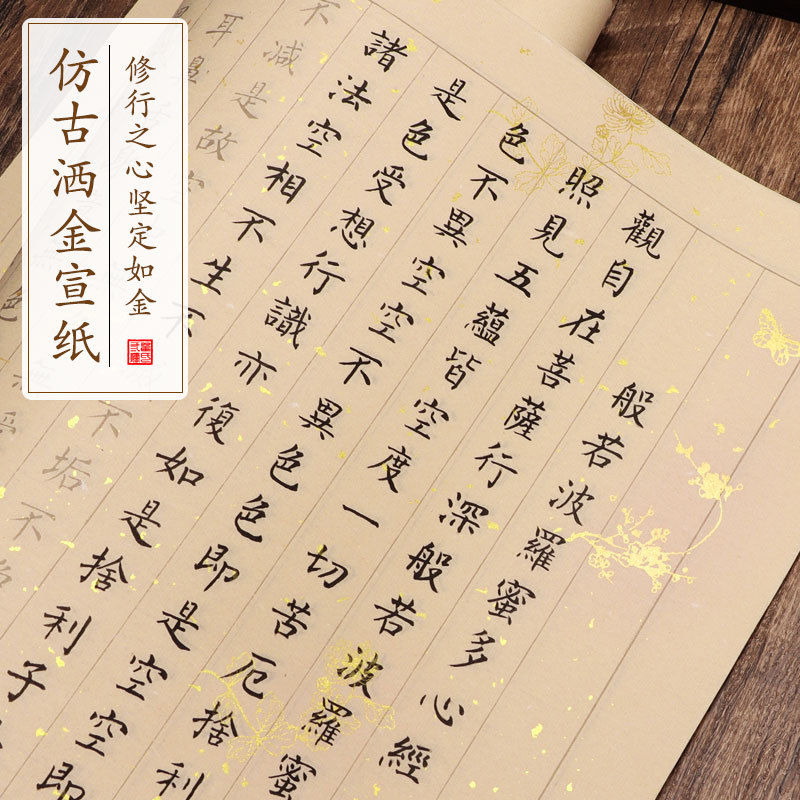 仿古洒金宣纸
修行之心坚定如金
般若波羅蜜多心經
觀自在菩薩行深般若波羅蜜
照見五蘊皆空度一切苦厄捨利
色不異空空不異色色即是空空即
是色受想行識亦復如是捨利子
諸法空相不生不
不垢不
不減是故空
耳鼻